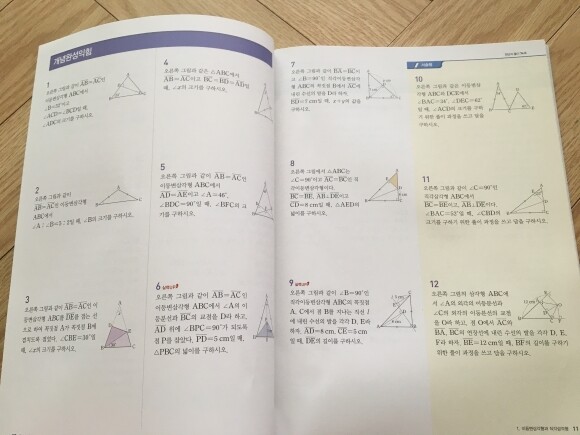 개념완성익힘
1
오른쪽 그림과 같이 AB=AC인
이등변삼각형 ABC에서
∠ACD=∠BCD일 때,
∠ADC의 크기를 구하시오.
2
오른쪽 그림과 같이
AB=AC인 이등변삼각형
ABC에서
∠A : ∠B=5 : 2일 때, ∠B의 크기를 구하시오.
3
오른쪽 그림과 같이 AB=AC인 이
등변삼각형 ABC를 DE를 접는 선
으로 하여 꼭짓점 A가 꼭짓점 B에
겹치도록 접었다. ∠CBE=36°일
때, ∠x의 크기를 구하시오.
4
오른쪽 그림과 같은 △ABC에서
AB=AC이고 BC=BD=AD일
때, ∠x의 크기를 구하시오.
5
오른쪽 그림과 같이 AB=AC인
이등변삼각형 ABC에서
AD=AE이고 ∠A=46°,
∠BDC=90°일 때, ∠BFC의 크
기를 구하시오.
6
오른쪽 그림과 같이 AB=AC인
이등변삼각형 ABC에서 ∠A의 이
등분선과 BC의 교점을 D라 하고,
AD 위에 ∠BPC=90°가 되도록
점 P를 잡았다. PD=5 cm일 때,
△PBC의 넓이를 구하시오.
7
오른쪽 그림과 같이 BA=BC이
고 ∠B=90°인 직각이등변삼각형
ABC의 꼭짓점 B에서 AC에
내린 수선의 발을 D라 하자.
BD=7 cm일 때, x+y의 값을
구하시오.
8
오른쪽 그림에서 △ABC는
∠C=90°이고 AC=BC인 직
각이등변삼각형이다.
BC=BE, AB⊥DE이고
CD=8 cm일 때, △AED의
넓이를 구하시오.
9
오른쪽 그림과 같이 ∠B=90°인
직각이등변삼각형 ABC의 꼭짓점
A, C에서 점 B를 지나는 직선 l
에 내린 수선의 발을 각각 D, E라
하자. AD=8 cm, CE=5 cm
일 때, DE의 길이를 구하시오.
서술형
10
오른쪽 그림과 같은 이등변삼
각형 ABC와 DCE에서
∠BAC=34°, ∠DEC=62°
일 때, ∠ACD의 크기를 구하
기 위한 풀이 과정을 쓰고 답을
구하시오.
11
오른쪽 그림과 같이 ∠C=90°인
직각삼각형 ABC에서
BC=BE이고, AB⊥DE이다.
∠BAC=52°일 때, ∠CBD의
크기를 구하기 위한 풀이 과정을 쓰고 답을 구하시오.
12
오른쪽 그림의 삼각형 ABC에
서 ∠A의 외각의 이등분선과
∠C의 외각의 이등분선의 교점
을 O라 하고, 점 O에서 AC와
BA, BC의 연장선에 내린 수선의 발을 각각 D, E,
F라 하자. BE=12 cm일 때, BF의 길이를 구하기
위한 풀이 과정을 쓰고 답을 구하시오.
1. 이등변삼각형과 직각삼각형 11